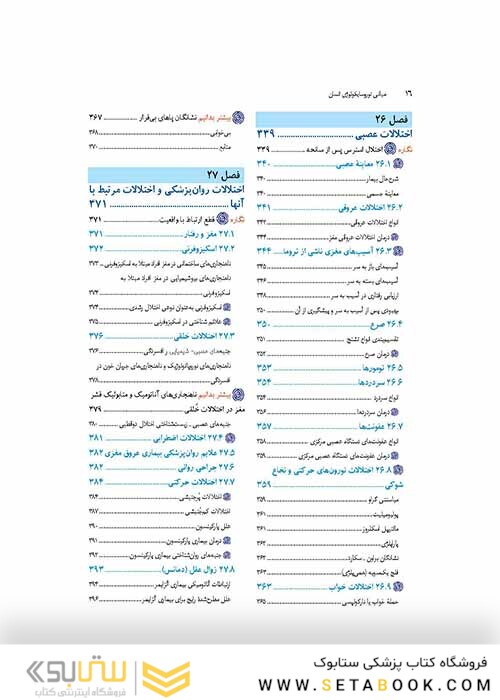 ۱۶ مبانی نوروسایکولوژی انسان
فصل ۲۶
اختلالات عصبی ... ۳۳۹
نگاره اختلال استرس پس از سانحه ... ۳۳۹
۲۶.۱ معاینهٔ عصبی ... ۳۴۰
شرح‌حال بیمار ... ۳۴۰
معاینهٔ جسمی ... ۳۴۰
۲۶.۲ اختلالات عروقی ... ۳۴۱
انواع اختلالات عروقی ... ۳۴۲
درمان اختلالات عروقی مغز ... ۳۴۳
۲۶.۳ آسیب‌های مغزی ناشی از تروما ... ۳۴۴
آسیب‌های باز به سر ... ۳۴۵
آسیب‌های بسته به سر ... ۳۴۶
ارزیابی رفتاری در آسیب به سر ... ۳۴۸
بهبودی پس از آسیب به سر و پیشگیری از آن ... ۳۵۰
۲۶.۴ صرع ... ۳۵۰
تقسیم‌بندی انواع تشنج ... ۳۵۱
درمان صرع ... ۳۵۲
۲۶.۵ تومورها ... ۳۵۳
۲۶.۶ سردردها ... ۳۵۴
انواع سردرد ... ۳۵۴
درمان سردردها ... ۳۵۶
۲۶.۷ عفونت‌ها ... ۳۵۷
انواع عفونت‌های دستگاه عصبی مرکزی ... ۳۵۸
درمان عفونت‌های دستگاه عصبی مرکزی ... ۳۵۹
۲۶.۸ اختلالات نورون‌های حرکتی و نخاع
شوکی ... ۳۵۹
میاستنی گراو ... ۳۵۹
پولیومیلیت ... ۳۶۱
مالتیپل اسکلروز ... ۳۶۱
پاراپلژی ... ۳۶۲
نشانگان براون ـ سکارد ... ۳۶۲
فلج یک‌سویه (همی‌پلژی) ... ۳۶۲
۲۶.۹ اختلالات خواب ... ۳۶۳
حملهٔ خواب یا نارکولپسی ... ۳۶۵
بیشتر بدانیم نشانگان پاهای بی‌قرار ... ۳۶۷
بی‌خوابی ... ۳۶۸
منابع ... ۳۷۰
فصل ۲۷
اختلالات روان‌پزشکی و اختلالات مرتبط با
آنها ... ۳۷۱
نگاره قطع ارتباط با واقعیت ... ۳۷۱
۲۷.۱ مغز و رفتار ... ۳۷۱
۲۷.۲ اسکیزوفرنی ... ۳۷۲
ناهنجاری‌های ساختمانی در مغز افراد مبتلا به اسکیزوفرنی ... ۳۷۳
ناهنجاری‌های بیوشیمیایی در مغز افراد مبتلا به
اسکیزوفرنی ... ۳۷۴
اسکیزوفرنی به‌عنوان نوعی اختلال رشدی ... ۳۷۴
علائم شناختی در اسکیزوفرنی ... ۳۷۵
۲۷.۳ اختلالات خلقی ... ۳۷۶
جنبه‌های عصبی- شیمیایی افسردگی ... ۳۷۶
ناهنجاری‌های نوروپاتولوژیک و ناهنجاری‌های جریان خون در
افسردگی ... ۳۷۸
بیشتر بدانیم ناهنجاری‌های آناتومیک و متابولیک قشر
مغز در اختلالات خُلقی ... ۳۷۹
جنبه‌های عصبی ـ زیست‌شناختی اختلال دوقطبی ... ۳۸۰
۲۷.۴ اختلالات اضطرابی ... ۳۸۱
۲۷.۵ علایم روان‌پزشکی بیماری عروق مغزی ۳۸۲
۲۷.۶ جراحی روانی ... ۳۸۲
۲۷.۷ اختلالات حرکتی ... ۳۸۴
اختلالات پُرجنبشی ... ۳۸۴
اختلالات کم‌جنبشی ... ۳۸۷
علل پارکینسون ... ۳۹۰
درمان بیماری پارکینسون ... ۳۹۱
جنبه‌های روان‌شناختی بیماری پارکینسون ... ۳۹۲
۲۷.۸ زوال عقل (دمانس) ... ۳۹۳
ارتباطات آناتومیکی بیماری آلزایمر ... ۳۹۴
علل مطرح‌شدهٔ رایج برای بیماری آلزایمر ... ۳۹۶
فروشگاه کتاب پزشکی ستابوک
WWW.SETABOOK.COM
ستابوک
فروشگاه اینترنتی کتاب